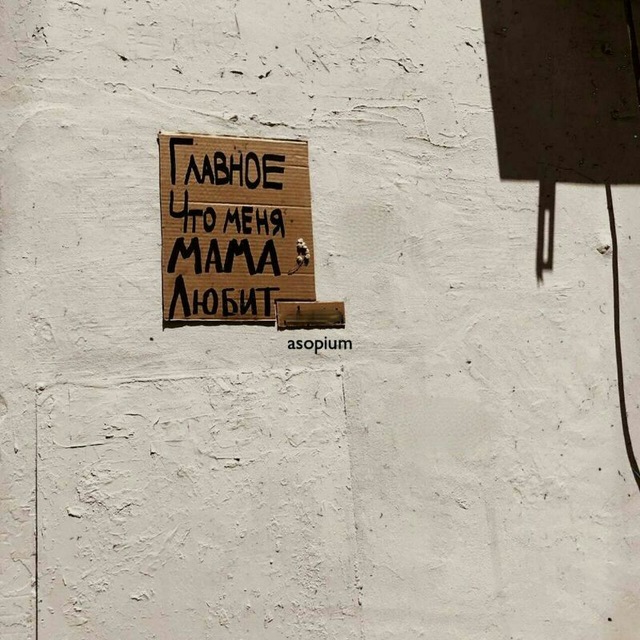 Главное
Что меня
мама
Любит
asopium